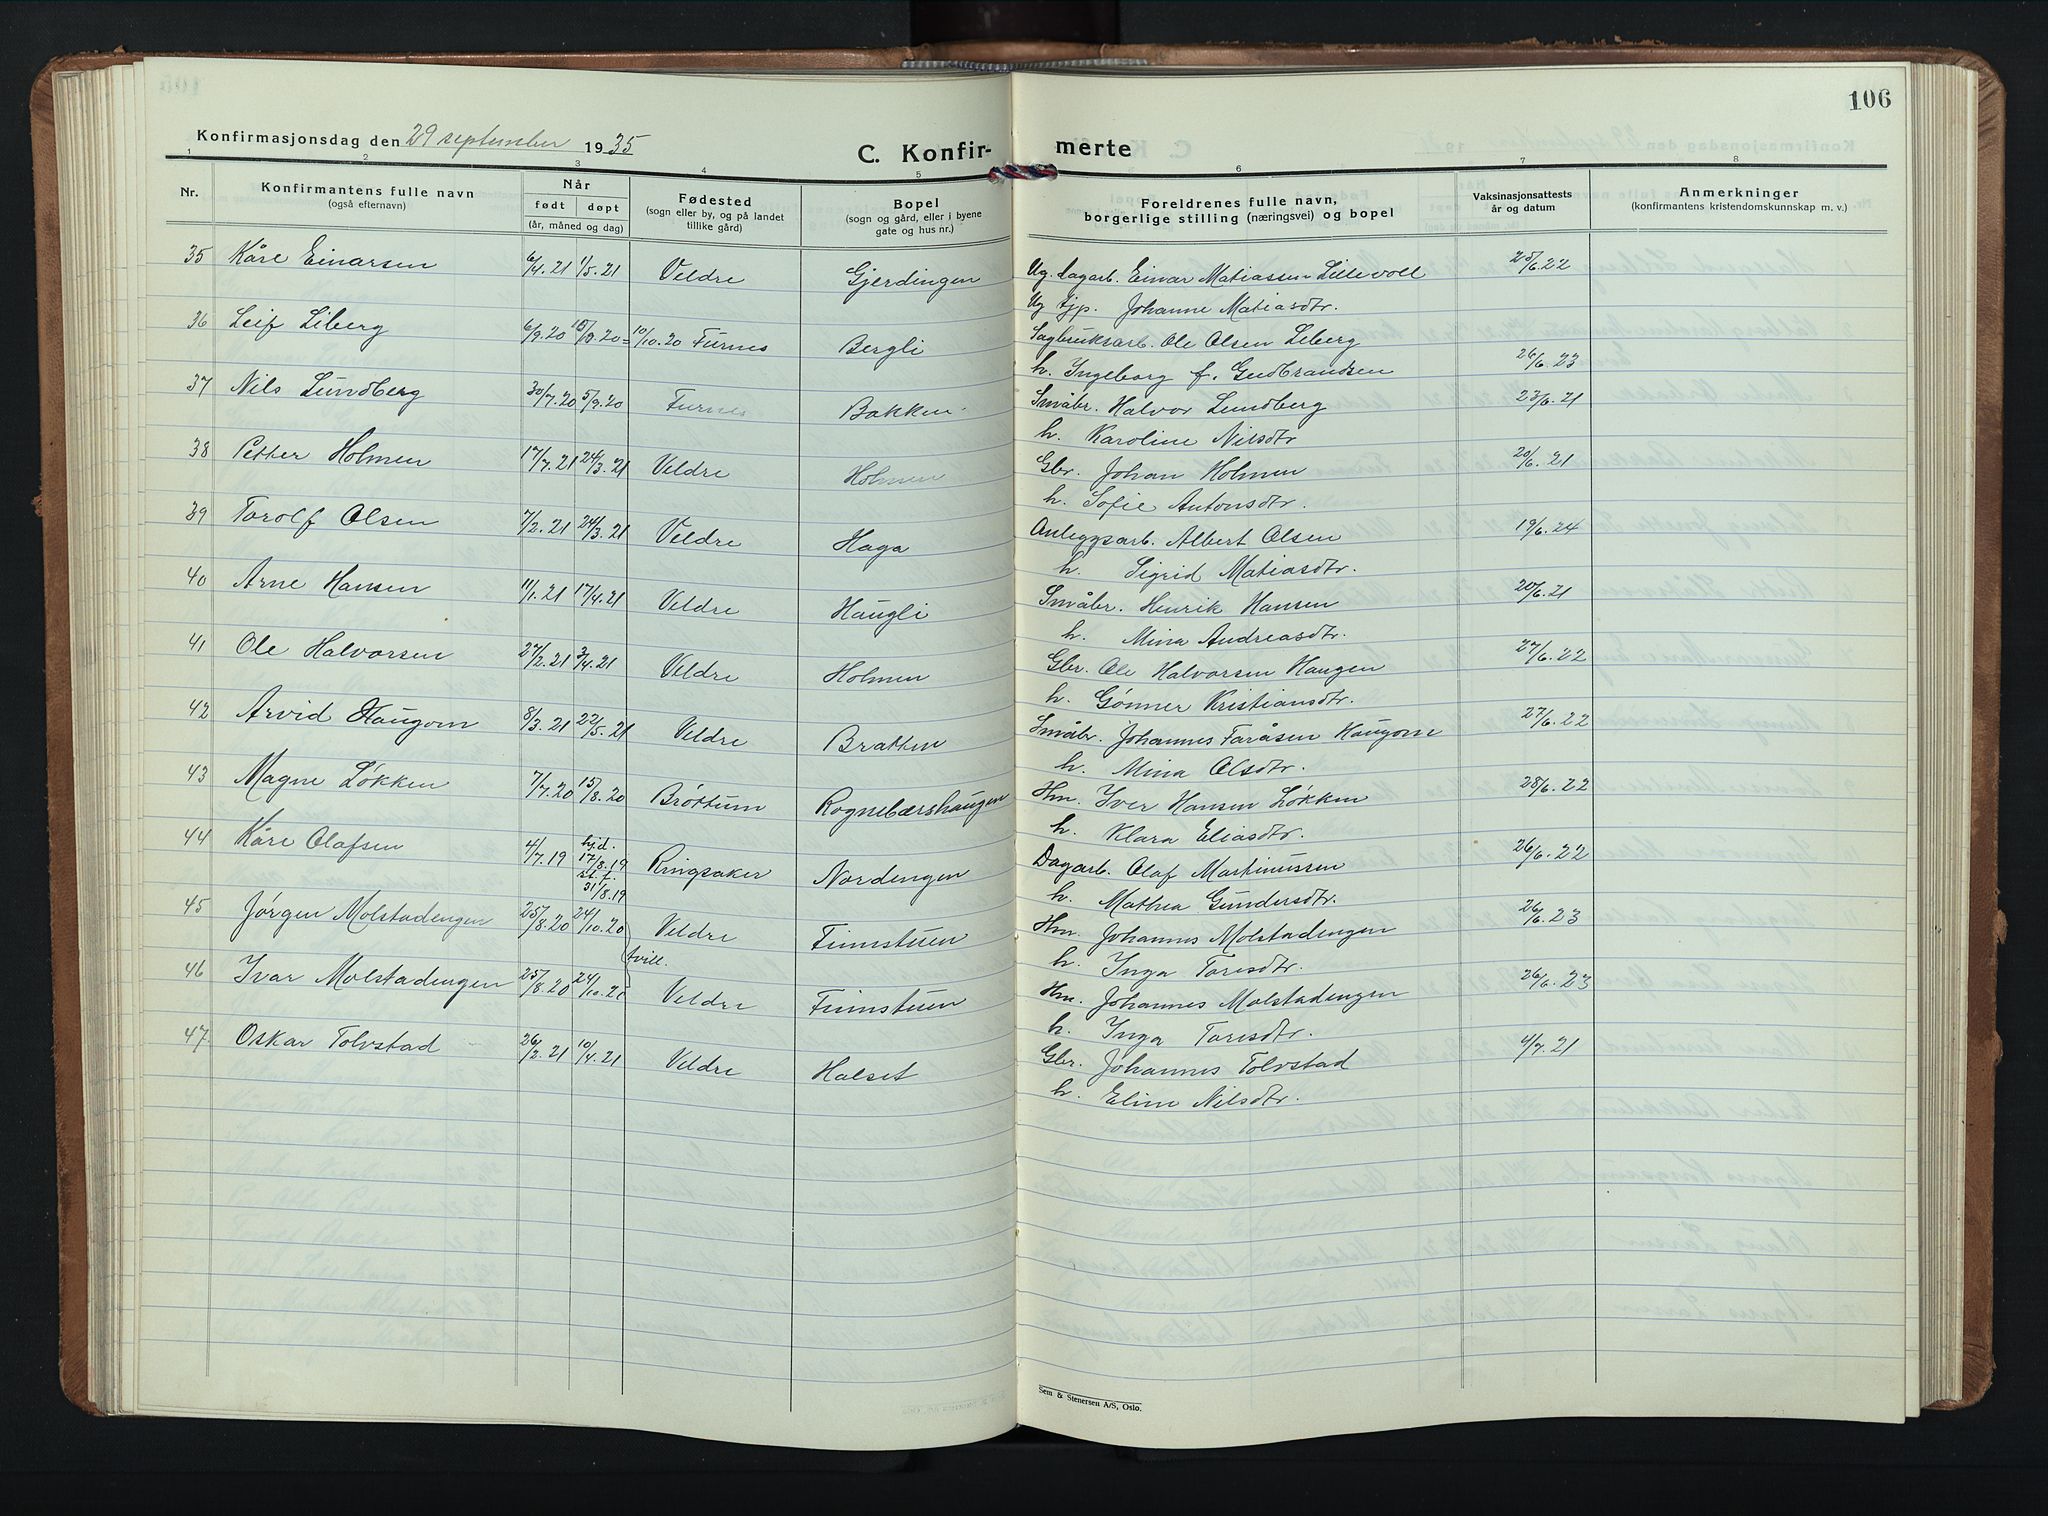 106
Konfirmasjonsdag den 29 september 1935
C. Konfir- merte
1 2 3 4 5 6 7 8
Nr.
Konfirmantens fulle navn
(også efternavn)
Når
født døpt
(år, måned og dag)
Fødested
(sogn eller by, og på landet
tillike gård)
Bopel
(sogn og gård, eller i byene
gate og hus nr.)
Foreldrenes fulle navn,
borgerlige stilling (næringsvei) og bopel
Vaksinasjonsattests
år og datum
Anmerkninger
(konfirmantens kristendomskunnskap m. v.)
35 Kåre Einarsen 6/4.21 1/5.21 Veldre Gjerdingen Ug. dagarb. Einar Matiassen Lillevoll 25/6.22
Ug tjp. Johanne Matiasdtr.
36 Leif Liberg 6/9.20 /9.20 = 10/10.20 Furnes Bergli Sagbruksarb. Ole Olsen Liberg
h. Ingeborg f. Gudbrandsen 26/6.23
37 Nils Lundberg 30/7.20 5/9.20 Furnes Bakken Småbr. Halvor Lundberg 23/6.21
h. Karoline Nilsdtr
38 Petter Holmen 17/7.21 24/3.21 Veldre Holmen Gbr. Johan Holmen 20/6.21
h. Sofie Antonsdtr.
39 Torolf Olsen 7/2.21 24/3.21 Veldre Haga Anleggsarb. Albert Olsen 19/6.24
h. Sigrid Matiasdtr.
40 Arne Hansen 11/1.21 17/4.21 Veldre Haugli Småbr. Henrik Hansen 20/6.21
h. Mina Andreasdtr.
41 Ole Halvorsen 27/2.21 3/4.21 Veldre Holmen Gbr. Ole Halvorsen Haugen 27/6.22
h. Gønner Kristiansdtr.
42 Arvid Haugom 8/3.21 22/5.21 Veldre Bratten Småbr. Johannes Toråsen Haugom 27/6.22
h. Mina Olsdtr.
43 Magne Løkken 7/7.20 15/8.20 Brøttum Rognebærshaugen Hm. Iver Hansen Løkken 28/6.22
h. Klara Eliasdtr.
44 Kåre Olafsen 4/7.19 hjd. 17/8.19 st. f. 31/8.19 Ringsaker Nordengen Dagarb. Olaf Martinussen 26/6.22
h. Mathea Gundersdtr.
45 Jørgen Molstadengen 25/8.20 24/10.20 Veldre Finnstuen Hm. Johannes Molstadengen 26/6.23
tvill.
h. Inga Toresdtr.
46 Ivar Molstadengen 25/8.20 24/10.20 Veldre Finnstuen Hm. Johannes Molstadengen 26/6.23
h. Inga Toresdtr.
47 Oskar Tolvstad 26/2.21 10/4.21 Veldre Halset Gbr. Johannes Tolvstad 4/7.21
h. Eline Nilsdtr.
Sem & Stenersen A/S, Oslo.